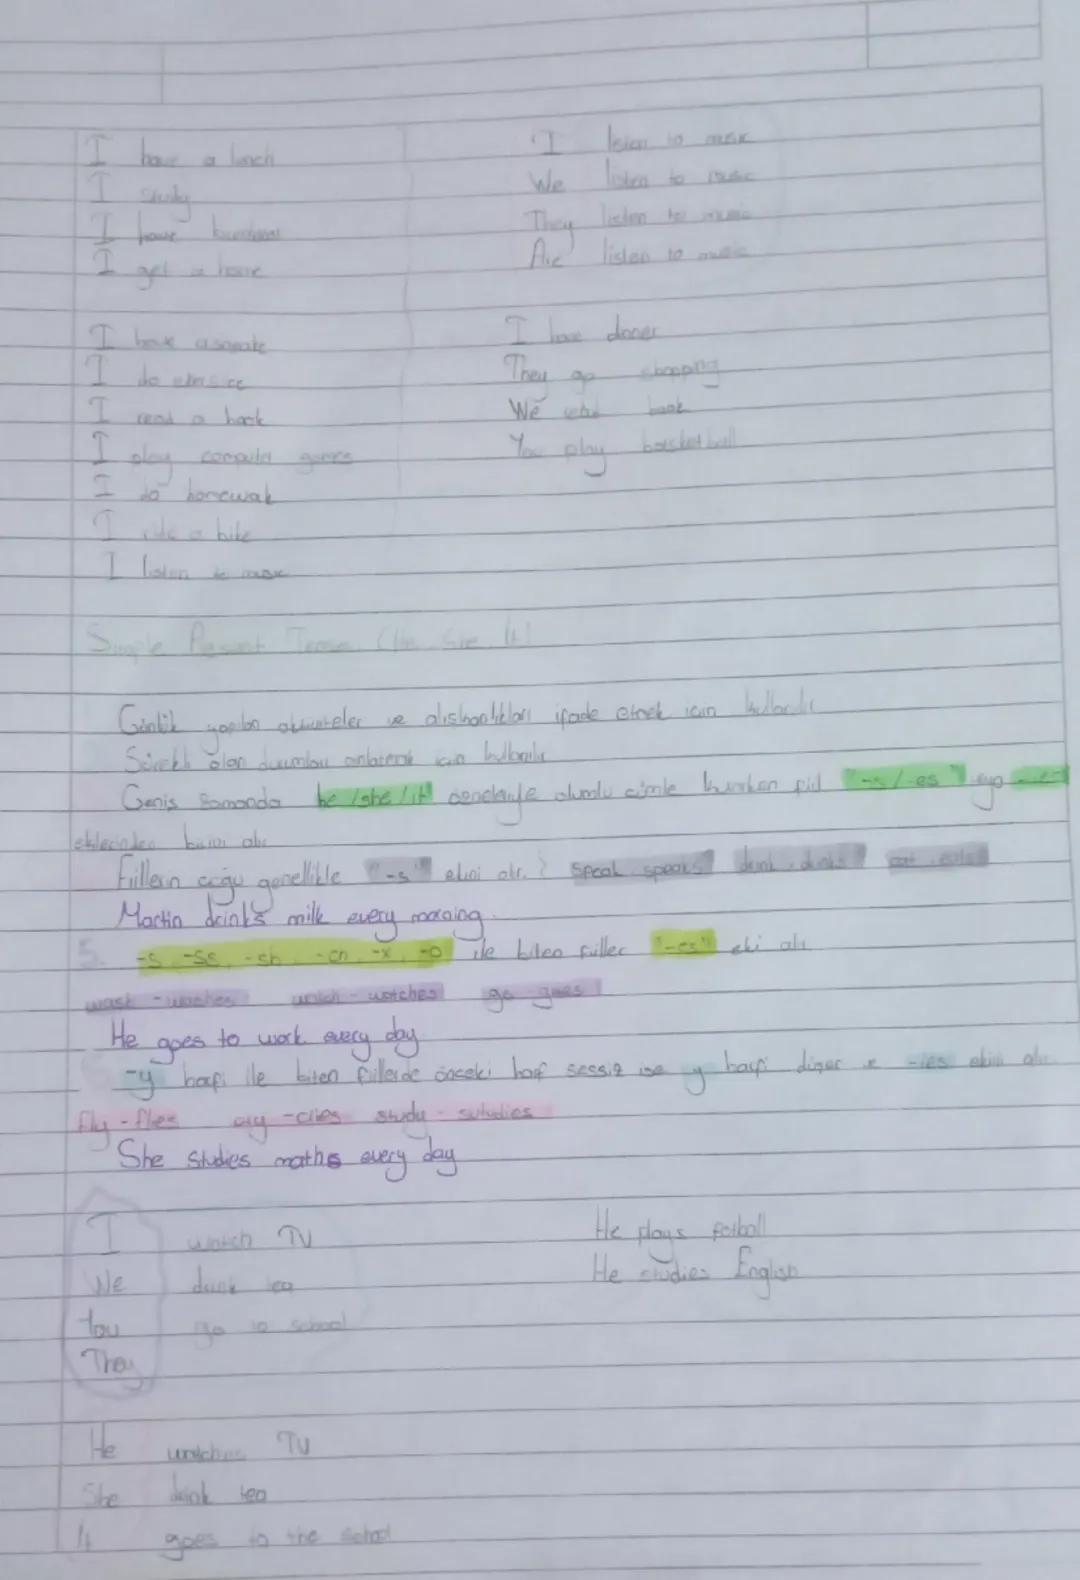 I have a lunch
I study
I have
I get a home
I listen to music
We listen to music
They listen to music
listen to music
I have
I do
I read a book
I play computer games
I do homewak
I ride a bike
I listen to music
I have doner
They go shopping
We read book
You play basketball
Simple Present Tense (He, She, It)
Günlük yapılan aktiviteler ve alışkanlıkları ifade etmek için kullanılır
Sürekli olan durumları anlatmak için kullanılır
Geniş zamanda he / she / it olumlu cümle kurarken fiil "-s / -es" veya
eklerinden birini alır
Fiillerin çoğu genellikle "-s" ekini alır. Speak speaks drink, drinks eat, eats
Martin drinks milk every morning.
5. -s, -ss, -sh, -ch, -x, -o ile biten fiiller "-es" eki alır
wash - washes watch - watches go - goes
He goes to work every day
-y harfi ile biten fiillerde önceki harf sessiz ise y harfi düşer ve -ies ekini alır
fly - flies cry - cries study - sutudies
She studies maths every day
I watch TV
We drink tea
You go to school
They
He plays fotball
He studies English
He watches TV
She drink tea
It goes to the school